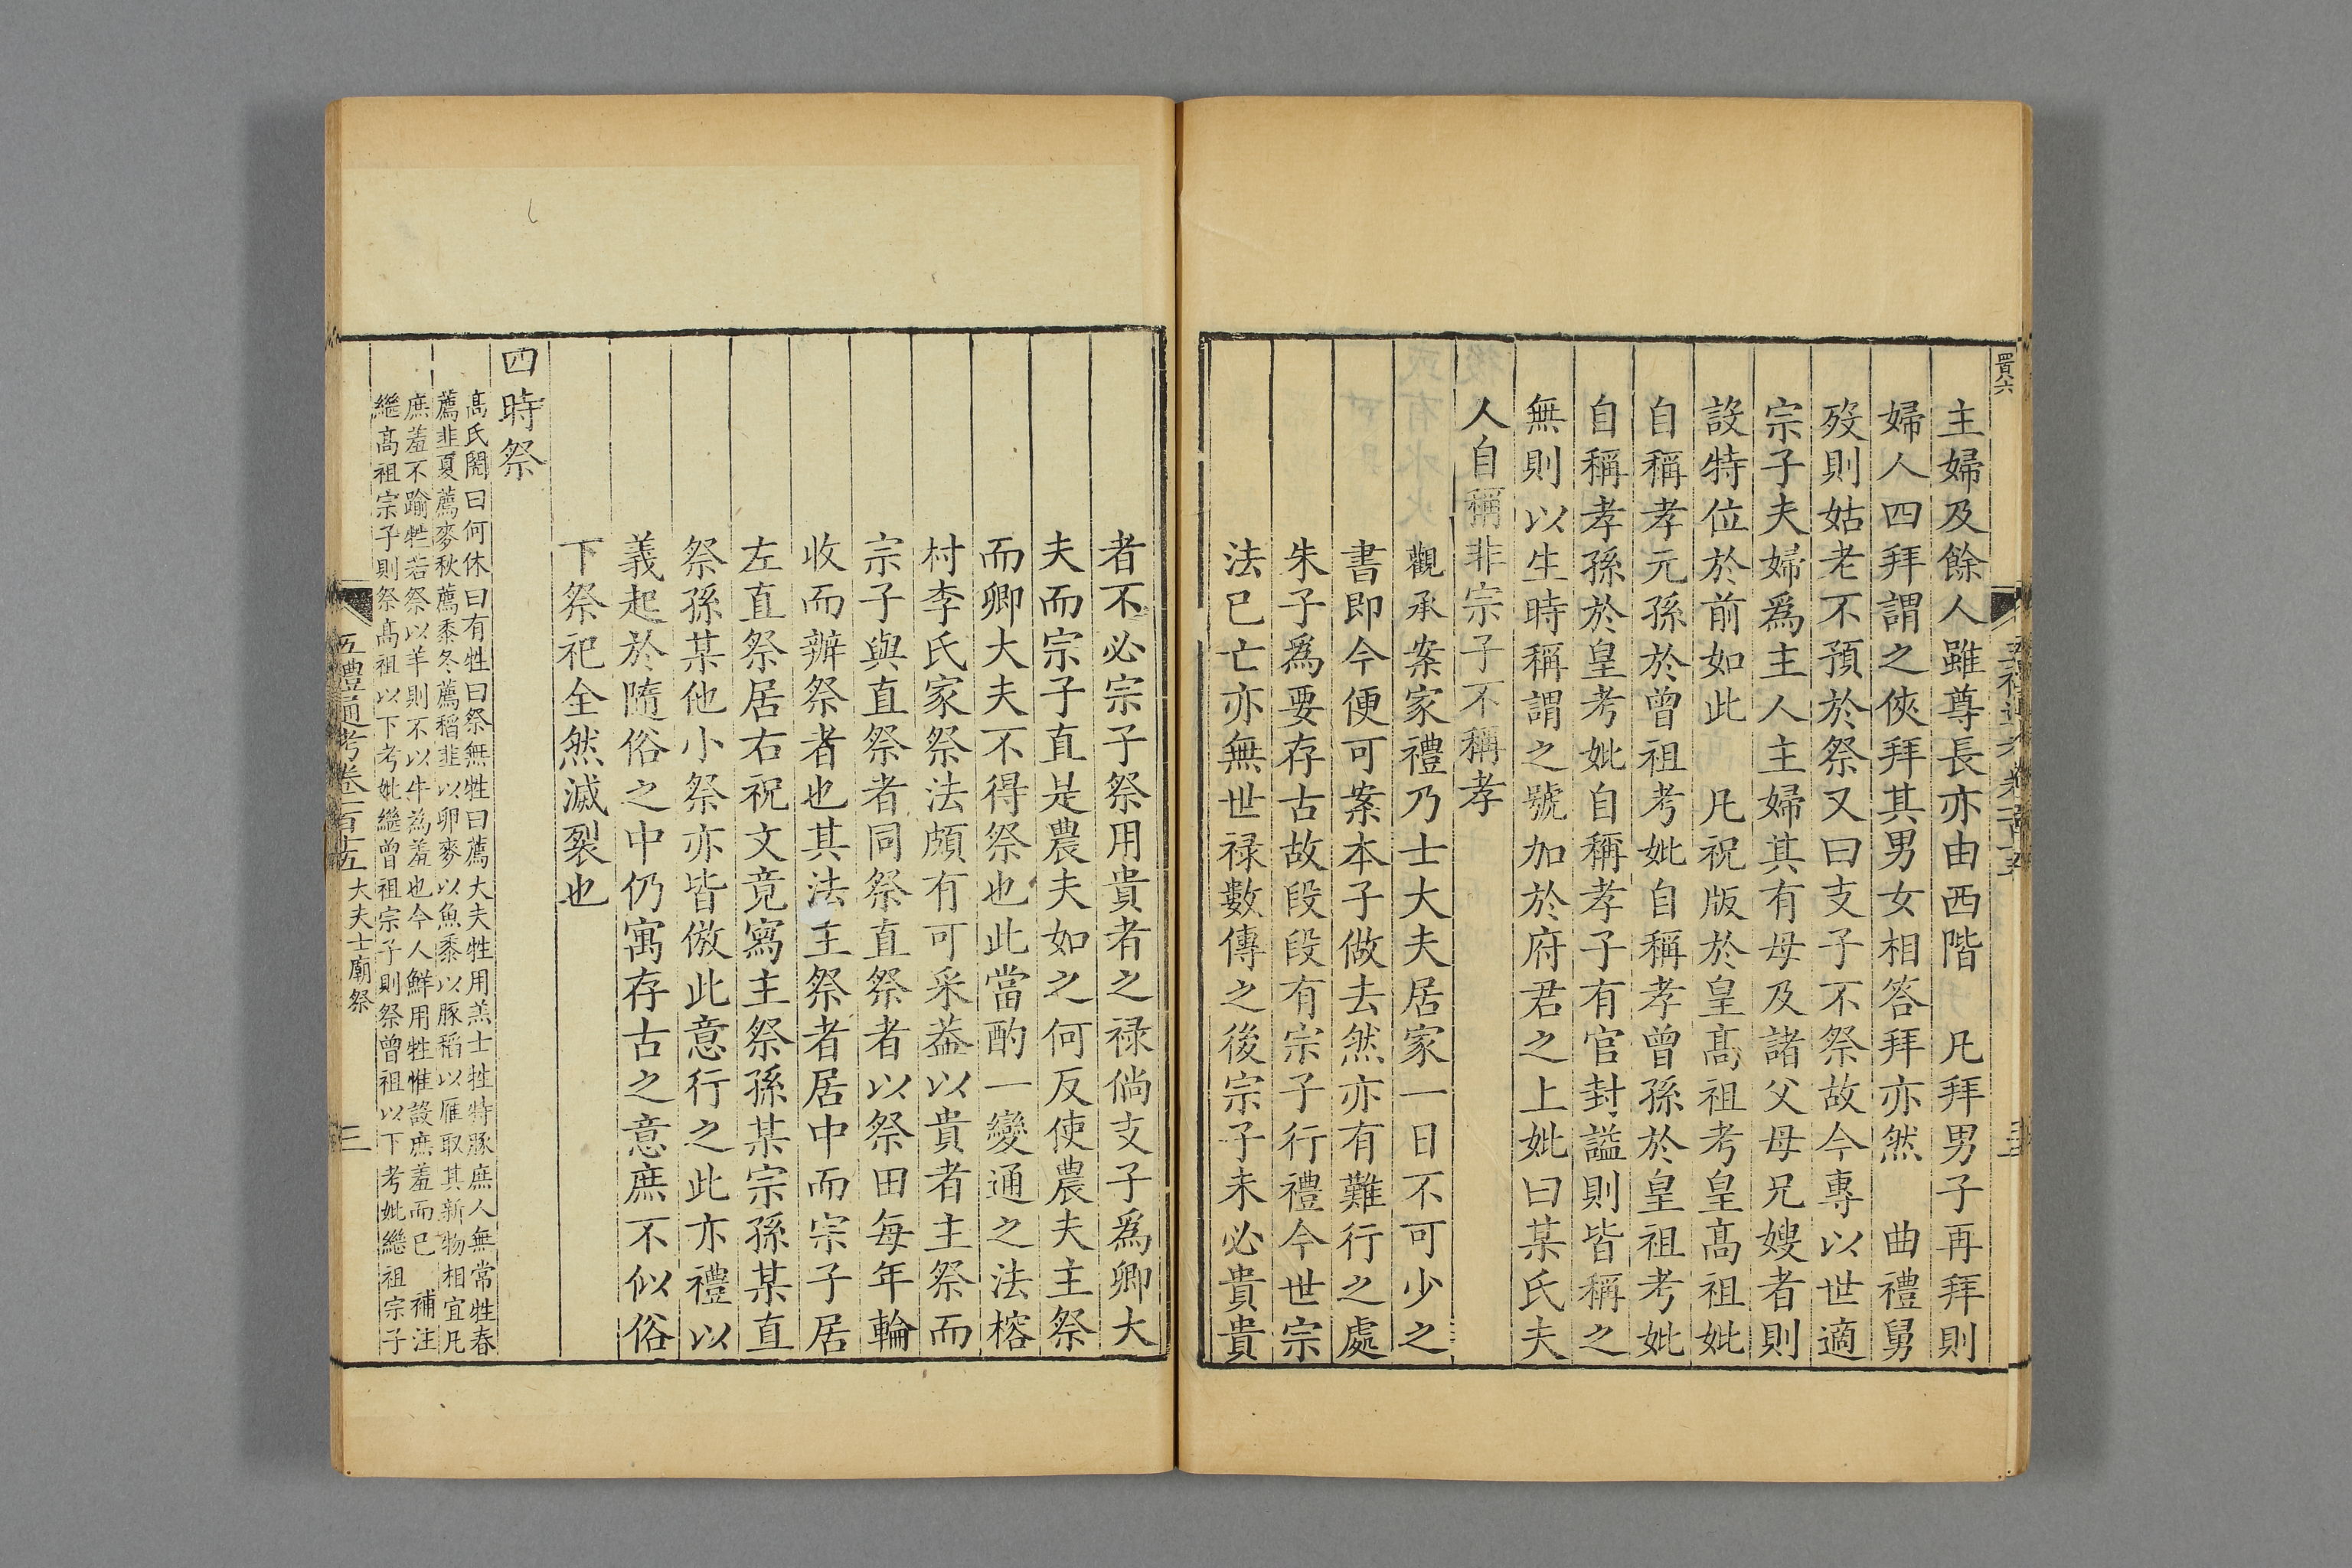 主婦及餘人雖尊長亦由西階　凡拜男子再拜則
婦人四拜謂之俠拜其男女相答拜亦然　曲禮舅
歿則姑老不預於祭又曰支子不祭故今專以世適
宗子夫婦爲主人主婦其有母及諸父母兄嫂者則
設特位於前如此　凡祝版於皇髙祖考皇髙祖妣
自稱孝元孫於曾祖考妣自稱孝曾孫於皇祖考妣
自稱孝孫於皇考妣自稱孝子有官封謚則皆稱之
無則以生時稱謂之號加於府君之上妣曰某氏夫
人自稱非宗子不稱孝
觀承案家禮乃士大夫居家一日不可少之
書即今便可案本子做去然亦有難行之處
朱子爲要存古故段段有宗子行禮今世宗
法已亡亦無世禄數傳之後宗子未必貴貴
者不必宗子祭用貴者之禄倘支子爲卿大
夫而宗子直是農夫如之何反使農夫主祭
而卿大夫不得祭也此當酌一變通之法榕
村李氏家祭法頗有可采葢以貴者主祭而
宗子與直祭者同祭直祭者以祭田每年輪
收而辦祭者也其法主祭者居中而宗子居
左直祭居右祝文竟寫主祭孫某宗孫某直
祭孫某他小祭亦皆倣此意行之此亦禮以
義起於隨俗之中仍寓存古之意庶不似俗
下祭祀全然滅裂也
四時祭
髙氏閌曰何休曰有牲曰祭無牲曰薦大夫牲用羔士牲特豚庶人無常牲春
薦韭夏薦麥秋薦黍冬薦稻韭以卵麥以魚黍以豚稻以雁取其新物相宜凡
庶羞不踰牲若祭以羊則不以牛為羞也今人鮮用牲惟設庶羞而已　補注
繼髙祖宗子則祭髙祖以下考妣繼曾祖宗子則祭曾祖以下考妣繼祖宗子
五禮通考卷一百十五　大夫士廟祭　三